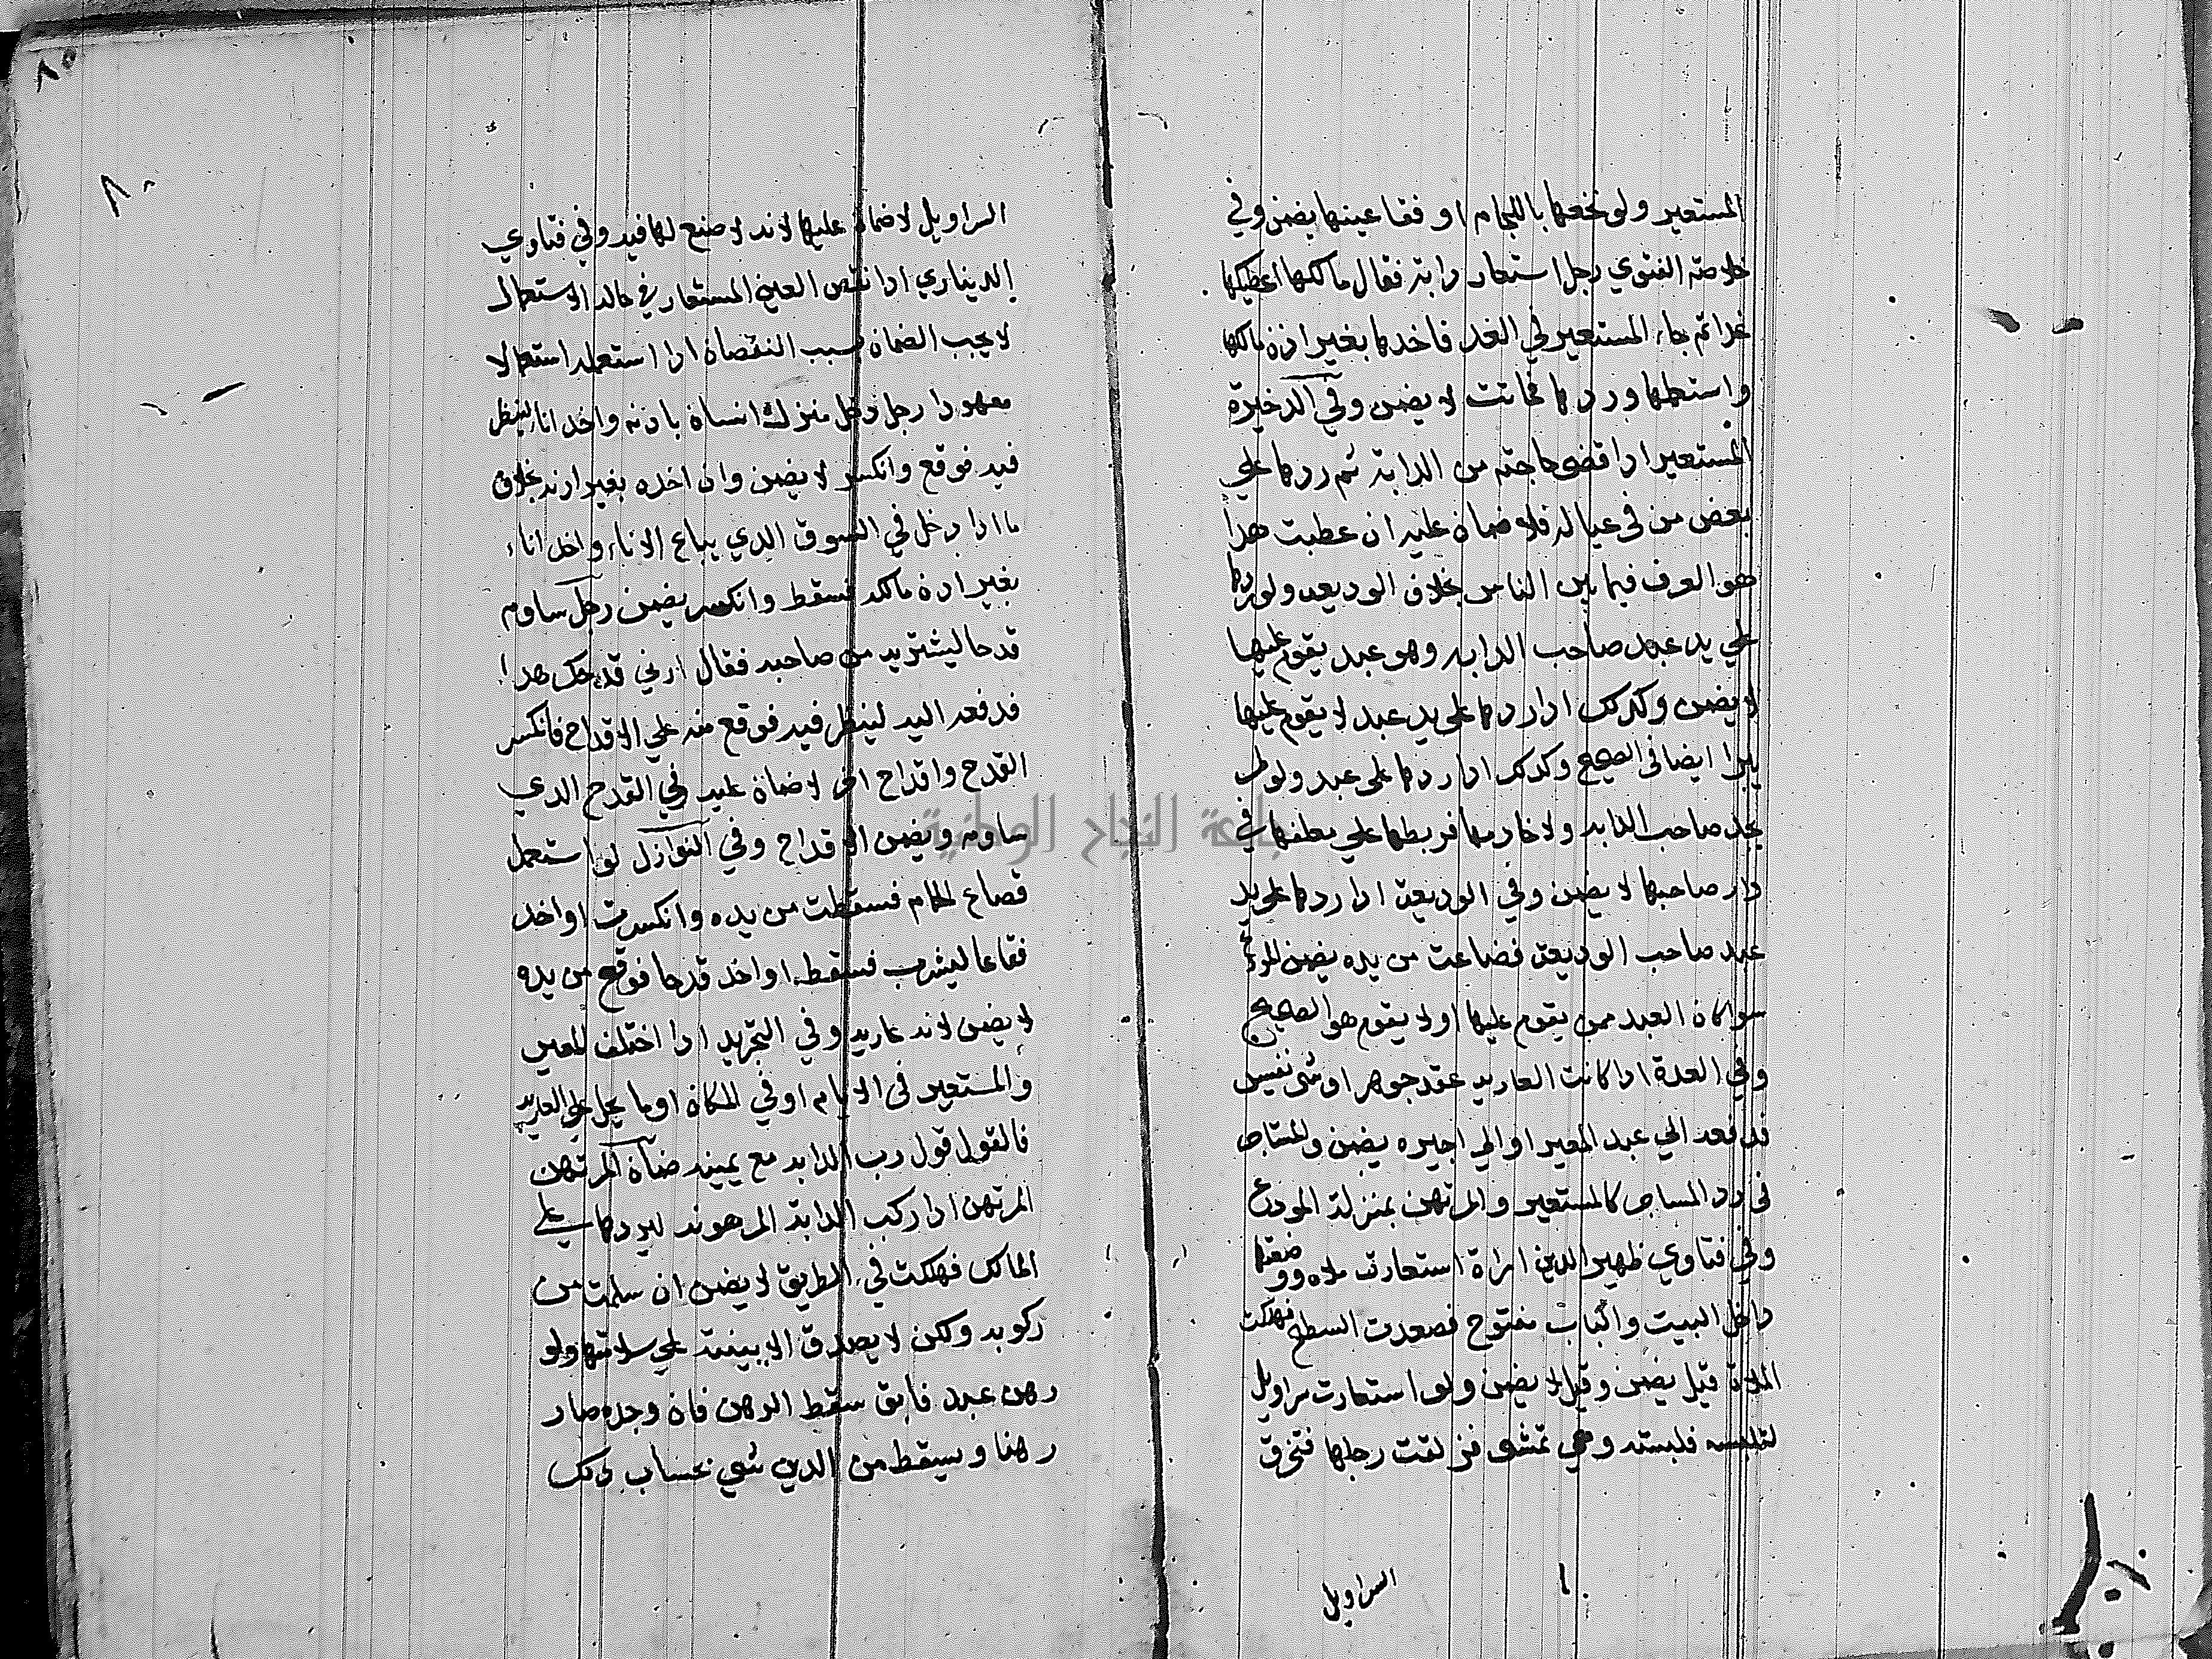 المستعير ولو نخعها باللجام او فقا عينها يضمن وفي
خلاصة الفتوي رجل استعار دابة فقال مالكها اعطيكها
غدا ثم جاء المستعير في الغد فاخدها بغير اذن مالكها
واستعملها وردها فماتت لا يضمن وفي الدخيرة
المستعير ادا قضى حاجته من الدابة ثم ردها علي
بعض من في عياله فلا ضمان عليه ان عطبت هدا
هو العرف فيما بين الناس بخلاف الوديعه ولو ردها
علي يد عبد صاحب الدابه وهو عبد يقوم عليها
لا يضمن وكدلك ادا ردها على يد عبد لا يقوم عليها
يبرا ايضا في الصحيح وكدلك ادا ردها على عبد ولو لم
يجد صاحب الدابه ولا خادمها فربطها علي معلفها في
دار صاحبها لا يضمن وفي الوديعة ادا ردها على يد
عبد صاحب الوديعة فضاعت من يده يضمن المودع
سوا كان العبد ممن يقوم عليها او لا يقوم هو الصحيح
وفي العدة ادا كانت العاريه عقد جوهر او شي نفيس
فدفعه الي عبد المعير او الي اجيره يضمن والمستاجر
في رد المستاجر كالمستعير والمرتهن بمنزلة المودع
وفي فتاوي ظهير الدين امراة استعارت ملاه ووضعتها
داخل البيت والباب مفتوح فصعدت السطح فهلكت
الملاة قيل يضمن وقيل لا يضمن ولو استعارت سراويل
لتلبسه فلبسته وهي تمشى فزلقت رجلها فتخرق
السراويل
٨٥
٨٠
السراويل لا ضمان عليها لانه لا صنع لها فيه وفي فتاوي
الديناري ادا نقص العين المستعار في حالة الاستعمال
لا يجب الضمان بسبب النقصان ادا استعمله استعمالا
معهودا رجل دخل منزل انسان بادنه واخد اناء لينظر
فيه فوقع وانكسر لا يضمن وان اخده بغير ادنه بخلاف
ما ادا دخل في السوق الدي يباع الاناء واخد اناء
بغير ادن مالكه فسقط وانكسر يضمن رجل ساوم
قدحا ليشتريه من صاحبه فقال ارني قدحك هدا
فدفعه اليه لينظر فيه فوقع منه علي الاقداح فانكسر
القدح واقداح اخر لا ضمان عليه في القدح الدي
ساومه ويضمن الاقداح وفي النوازل لو استعمل
قصاع الحمام فسقطت من يده وانكسرت او اخد
فقاعا ليشرب فسقط او اخد قدحا فوقع من يده
لا يضمن لانه عاريه وفي التجريد ادا اختلف المعير
والمستعير في الايام او في المكان او ما يحمل على العاريه
فالقول قول رب الدابه مع يمينه ضمان المرتهن
المرتهن ادا ركب الدابة المرهونه ليردها على
المالك فهلكت في الطريق لا يضمن ان سلمت من
ركوبه ولكن لا يصدق الا ببينة علي سلامتها ولو
رهن عبد فابق سقط الرهن فان وجده صار
رهنا ويسقط من الدين شي بحساب دلك
جامعة النجاح الوطنية